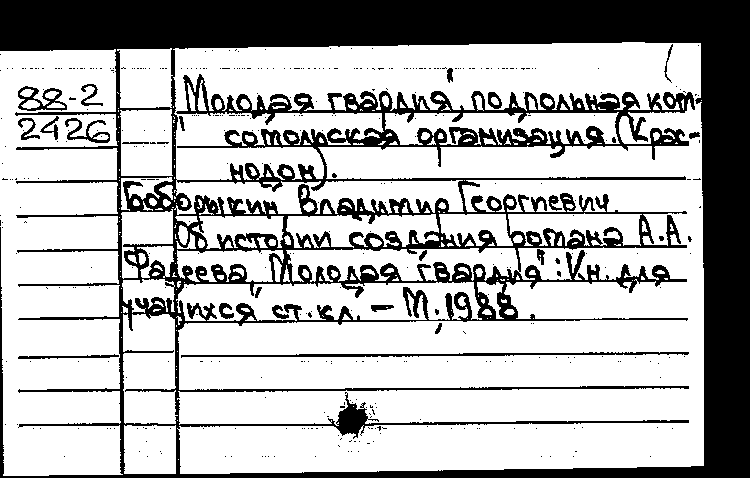 88-2
2426
"Молодая гвардия", подпольная ком-
сомольская организация. (Крас-
нодон).
Боборыкин Владимир Георгиевич.
Об истории создания романа А.А.
Фадеева "Молодая гвардия": Кн. для
учащихся ст. кл. – М., 1988.